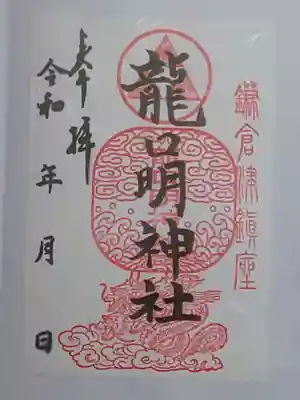 鎌倉陣鎮座
龍口明神社
奉拝
令和 年 月 日